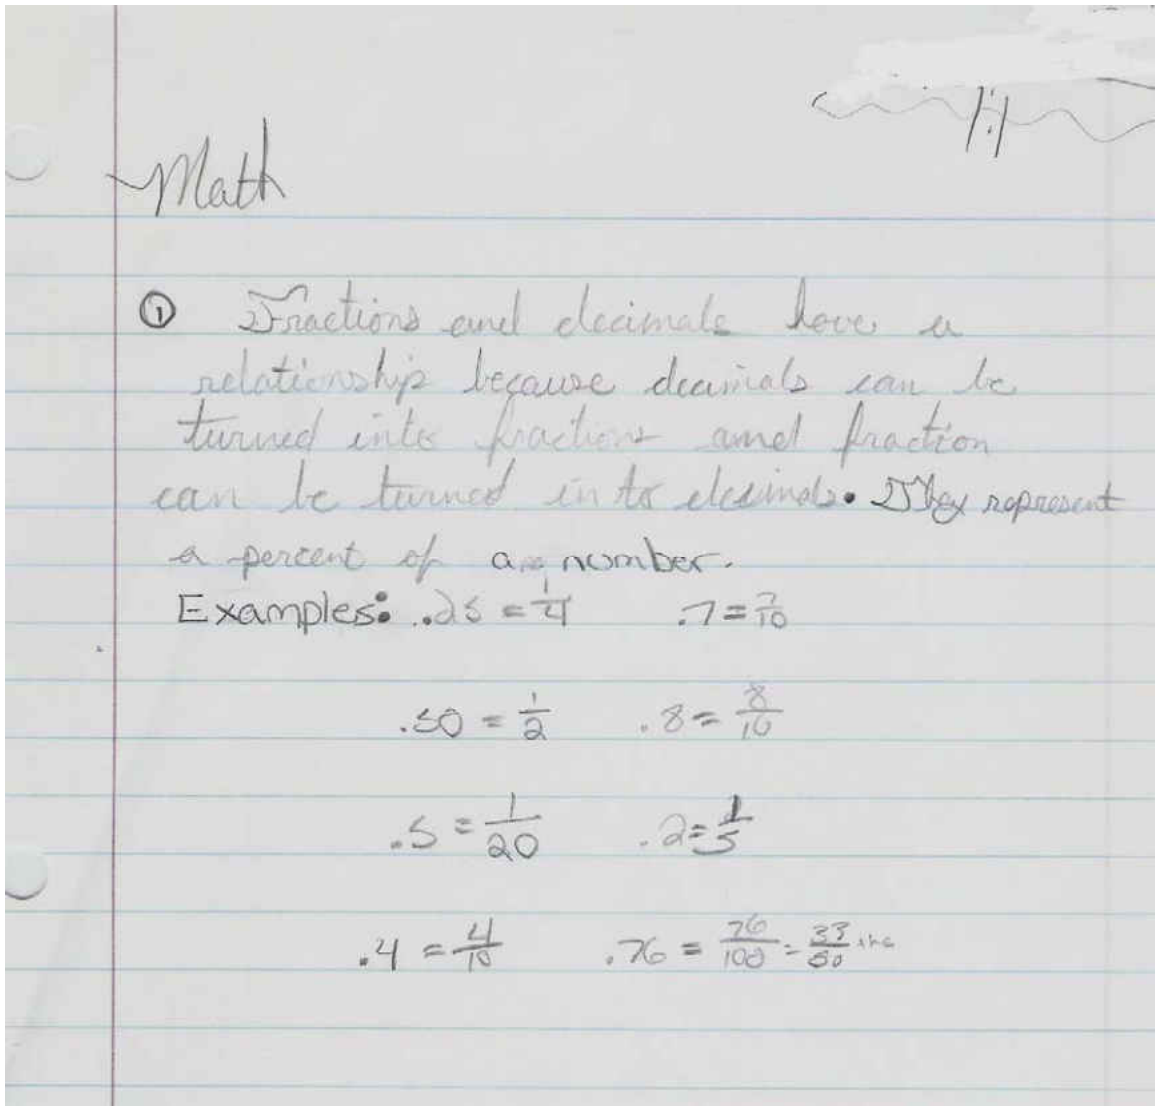 Math
① Fractions and decimals have a
relationship because decimals can be
turned into fractions and fraction
can be turned in to decimals. They represent
a percent of a number.
Examples: .25 = 1/4 .7 = 7/10
.50 = 1/2 .8 = 8/10
.5 = 1/20 .2 = 1/5
.4 = 4/10 .76 = 76/100 = 33/50